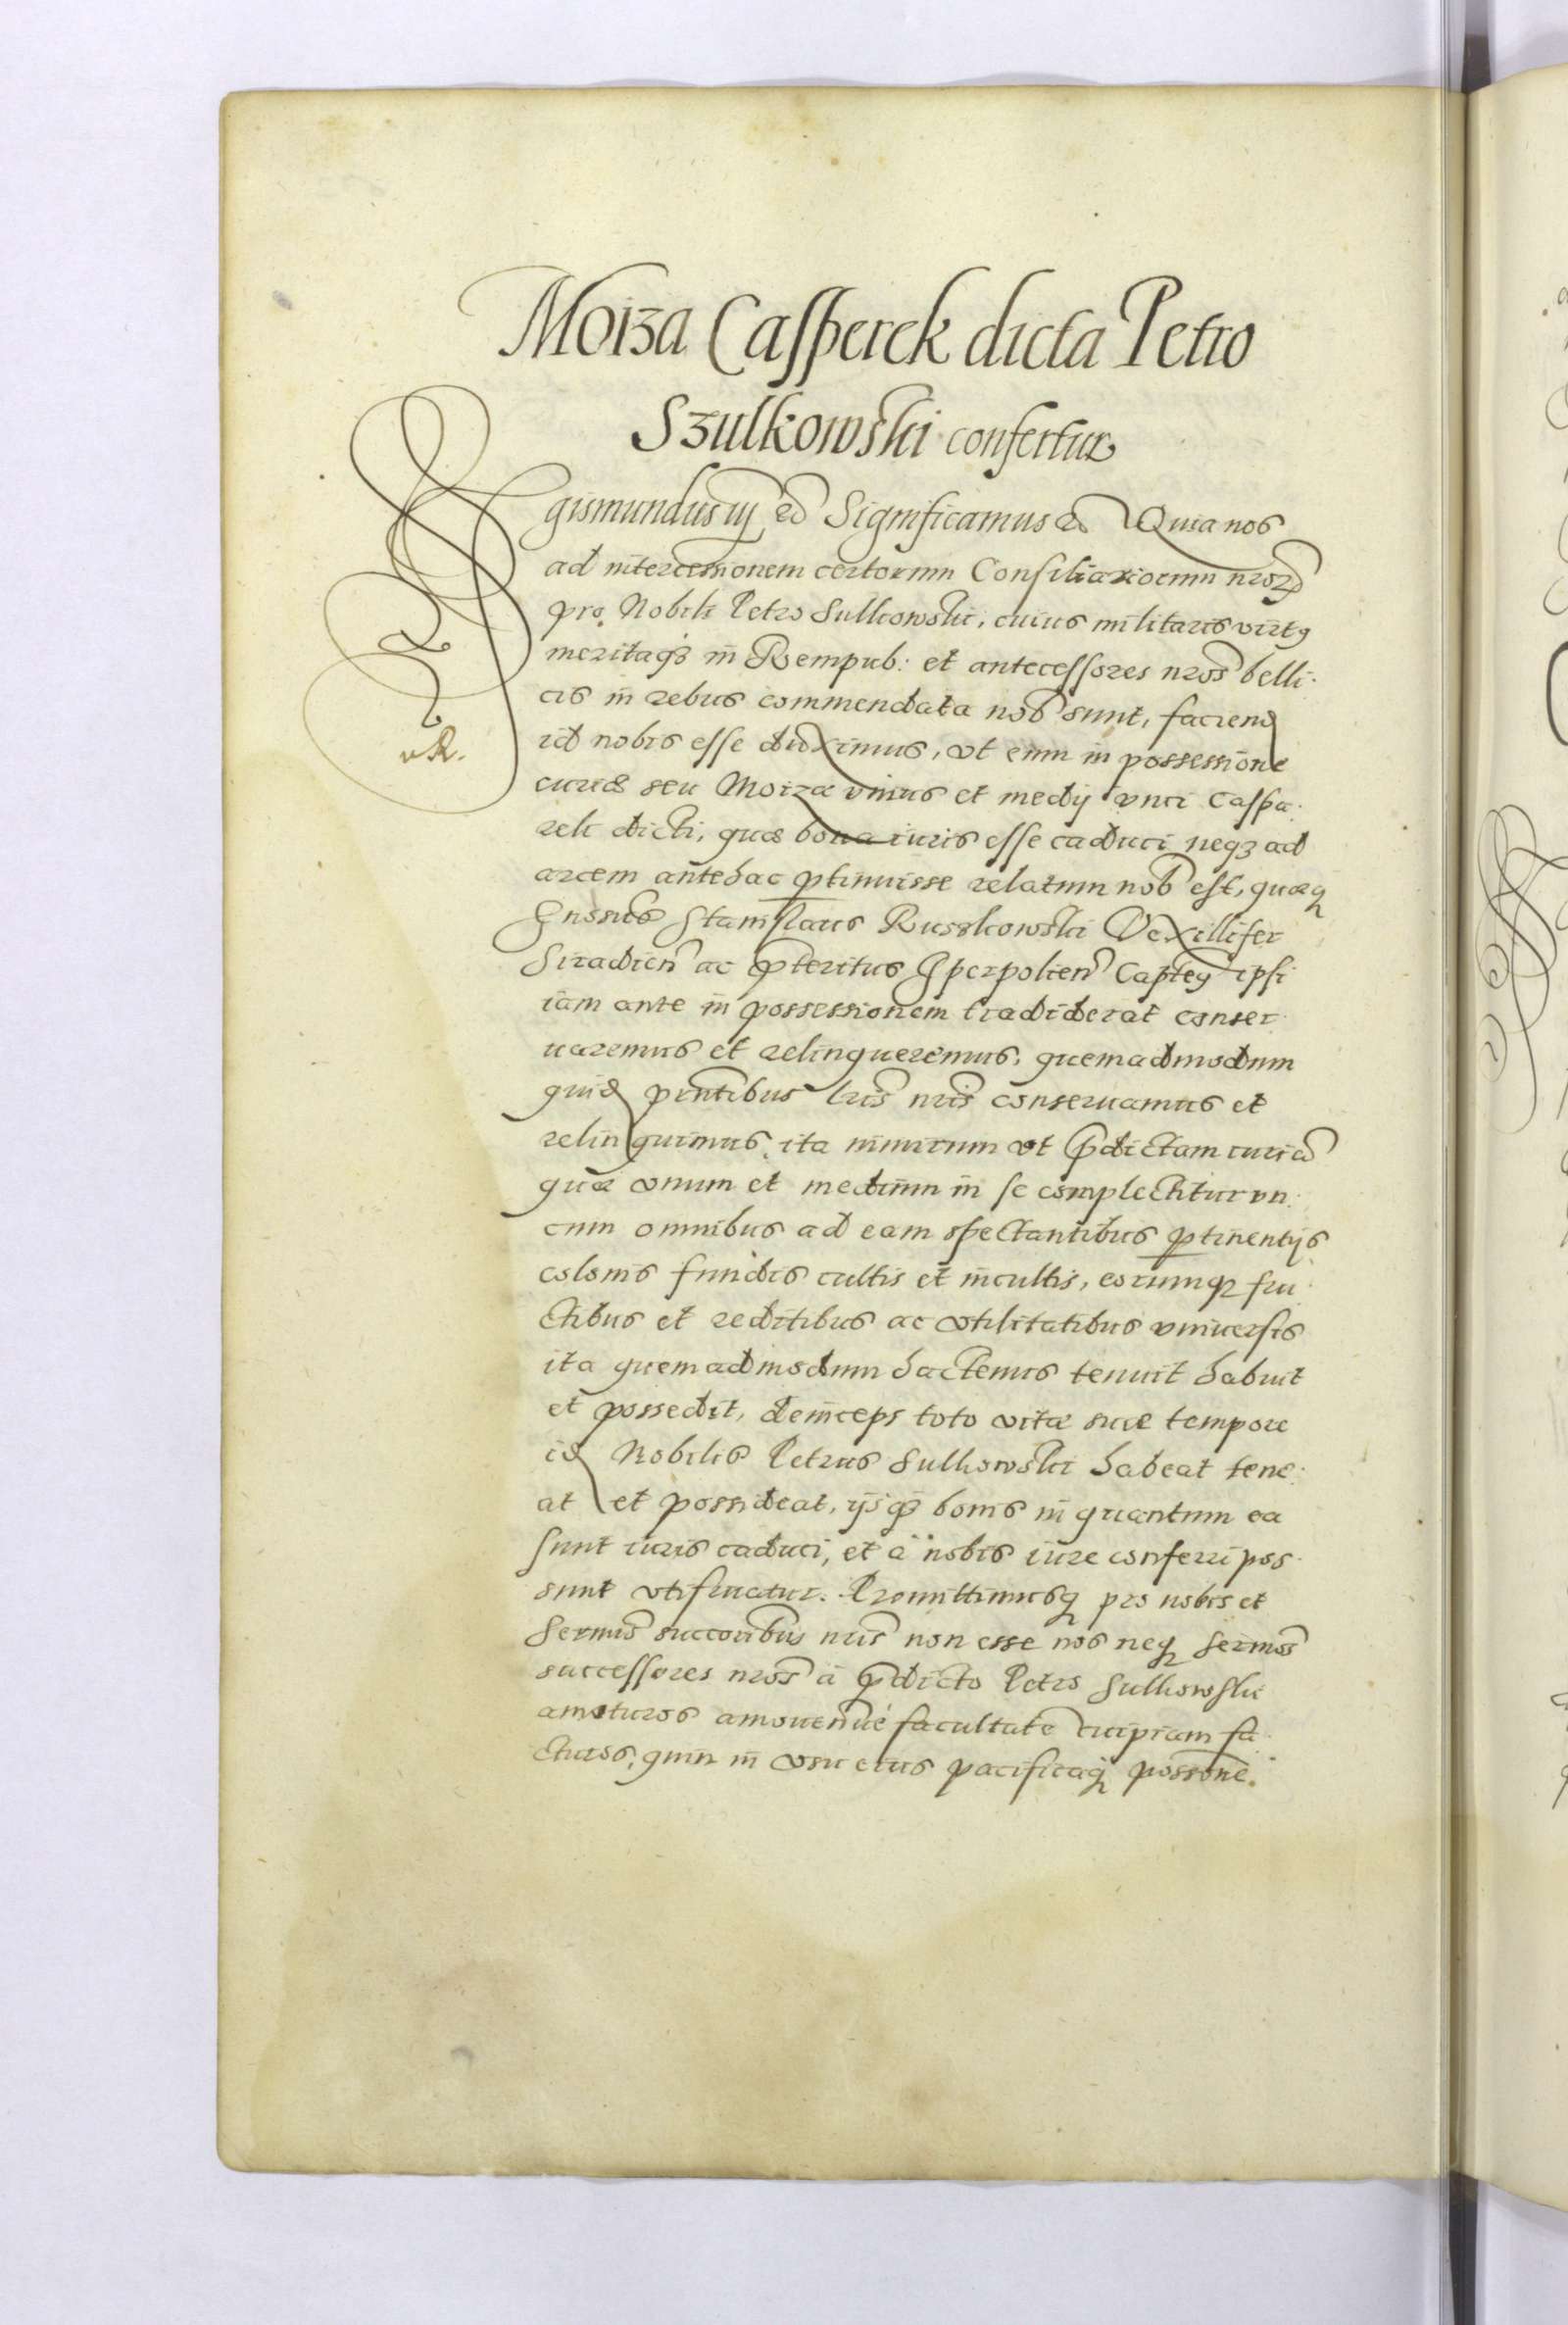 Moiza Casperek dicta Petro
Szulkowski confertur
Sigismundus iij etc Significamus etc Quia nos
ad intercessionem certorum Consiliariorum nror̃
pro Nobili Petro Sulkowski, cuius militaris virtꝰ
meritaqꝫ in Rempub: et antecessores nros̃ belli-
cis in rebus commendata nob̃ sunt, faciend
id nobis esse duximus, vt eum in possessione
curiæ seu Moizæ vnius et medij vnci Caspa-
rek dicti, quæ bona iuris esse caduci neqꝫ ad
arcem antehac ꝑtinuisse relatum nob̃ est, quæqꝫ
Gnosus̃ Stanislaus Russkowski Vexillifer
Siradien̄ ac p̃teritus Operpolien̄ Capteꝰ ipsi
iam ante in possessionem tradiderat conser-
uaremus et relinqueremus, quemadmodum
quid p̃ntibus lris̃ nris̃ conseruamus et
relinquimus, ita nimirum vt p̃dictam curiã
quæ vnum et medium in se complectitur vn:
cum omnibus ad eam spectantibus ꝑtinentijs
colonis fundis cultis et incultis, eorumqꝫ fru-
ctibus et reditibus ac vtilitatibus vniuersis
ita quemadmodum hactenus tenuit habuit
et possedit, deinceps toto vitæ suæ tempore
id Nobilis Petrus Sulkowski habeat tene-
at et possideat, ijsqꝫ bonis in quantum ea
sunt iuris caduci, et à nobis iure conferri pos-
sunt vtifruatur. Promittimusqꝫ pro nobis et
Sermis̃ succoribus̃ nris̃ non esse nos neqꝫ sermos̃
successores nros̃ à p̃dicto Petro Sulkowski
amoturos amouendivé facultatẽ cuipiam fa-
cturos, quin in vsu eius pacificaqꝫ possone.